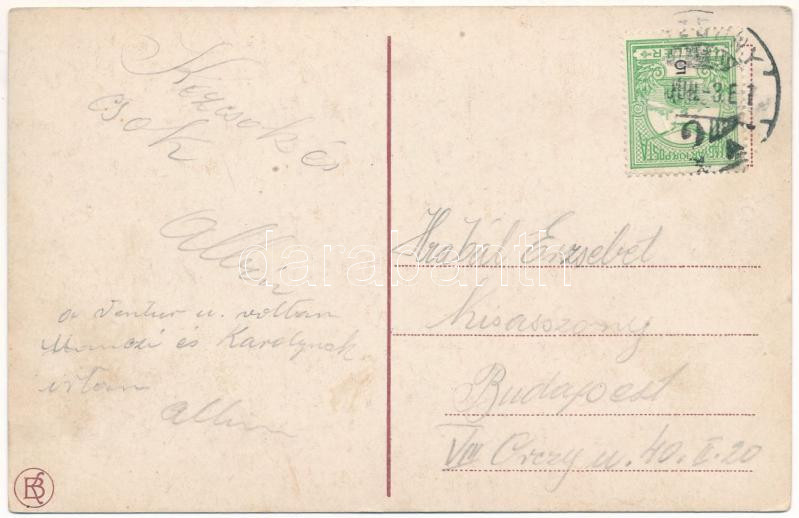 Kézcsok és
csok
Albin
a Ventur u. voltam
Manczi és Karolynak
irtam
Albin
MAGYAR KIR. POSTA
5
JUN.-3.E.
Hrabál Erzsébet
Kisasszony
Budapest
VIII Orczy u. 40. II. 20
darabanth
BS